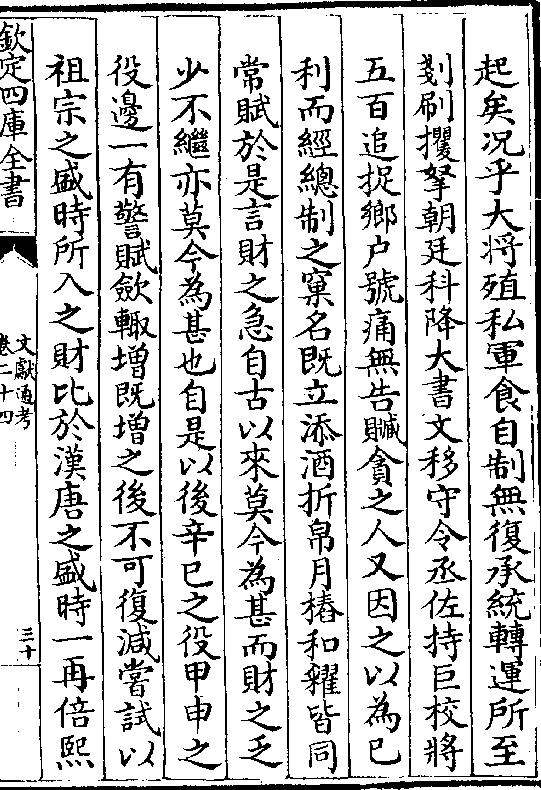 起矣况乎大将殖私軍食自制無復承統轉運所至
剗刷攫拏朝廷科降大書文移守令丞佐持巨校將
五百追捉鄉户號痛無告贓貪之人又因之以為已
利而經總制之窠名既立添酒折帛月樁和糴皆同
常賦於是言財之急自古以來莫今為甚而財之乏
少不繼亦莫今為甚也自是以後辛巳之役甲申之
役邊一有警賦斂輙增既增之後不可復減嘗試以
祖宗之盛時所入之財比於漢唐之盛時一再倍熙
欽定四庫全書
文獻通考
卷二十四
三十